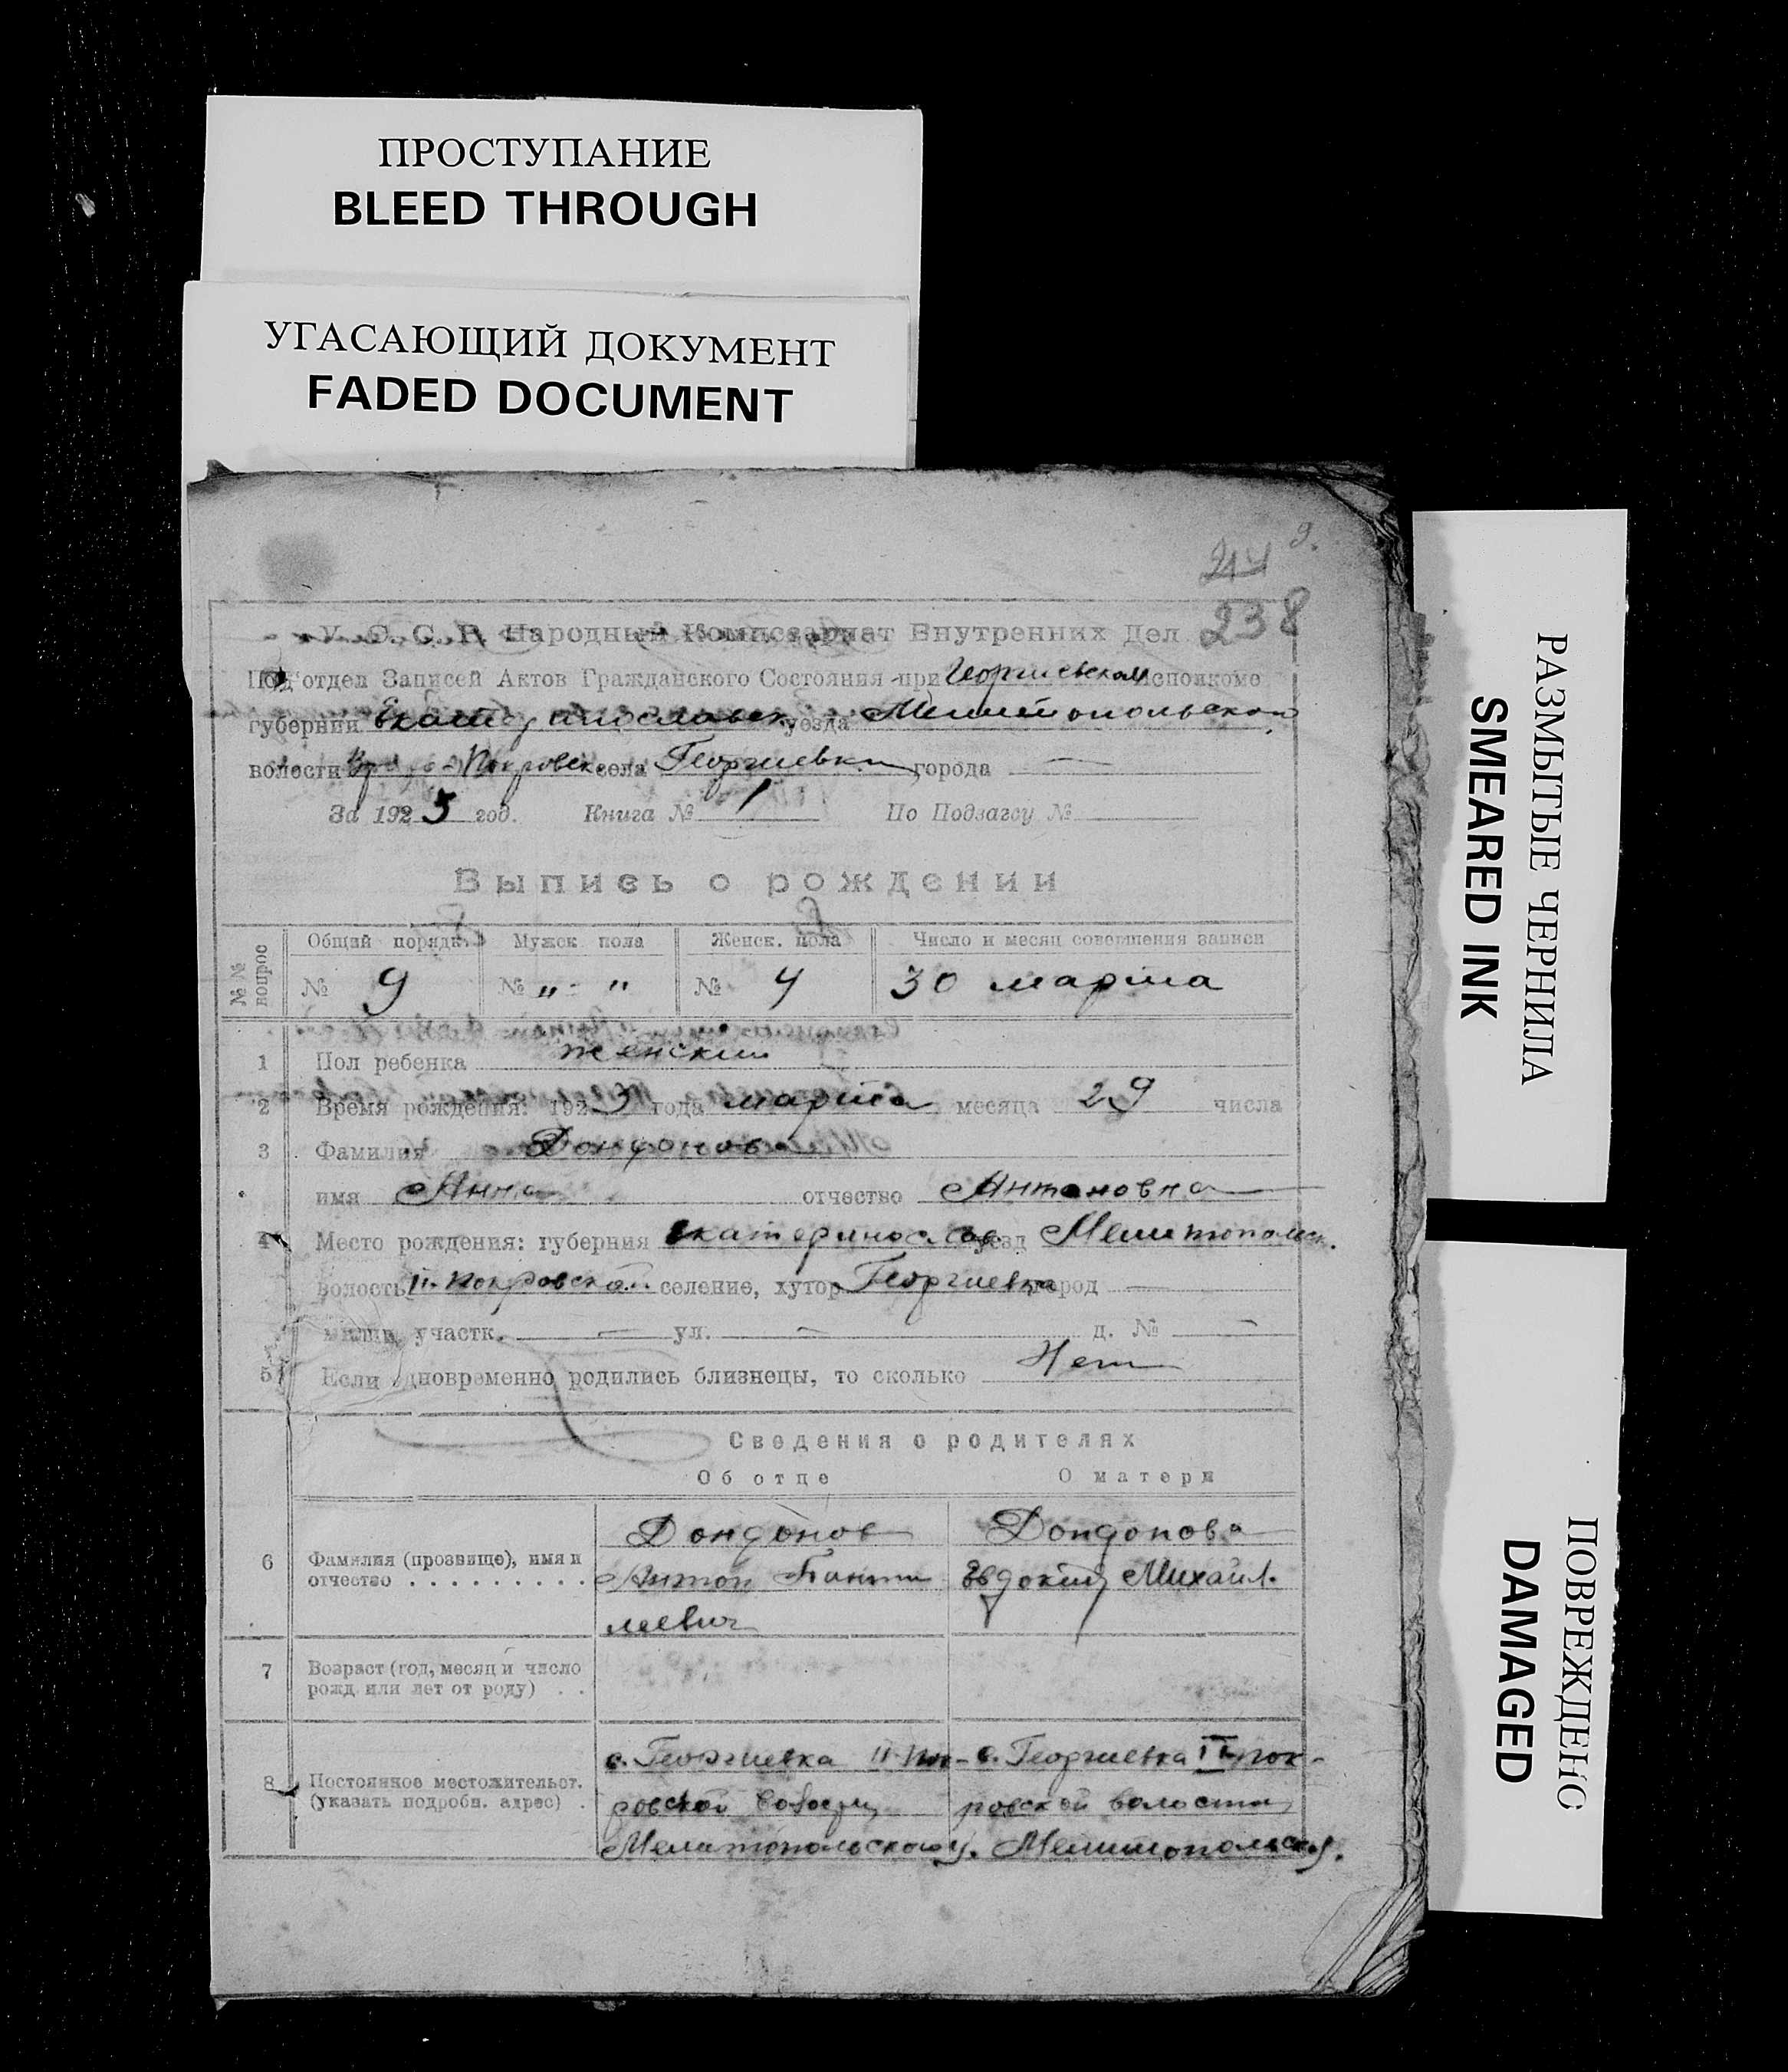 ПРОСТУПАНИЕ
BLEED THROUGH
УГАСАЮЩИЙ ДОКУМЕНТ
FADED DOCUMENT
9.
244
238
У. С. С. Р. Народный Комиссариат Внутренних Дел
Под‘отдел Записей Актов Гражданского Состояния при Георгиевском Исполкоме
губернии Екатеринославск. уезда Мелитопольского
волости Покровск. села Георгиевки города —
За 1923 год. Книга № 1 По Подзагсу №
Выпись о рождении
№№ вопрос
Общий порядк. Мужск. пола Женск. пола Число и месяц совершения записи
№ 9 № „ - " № 4 30 марта
1 Пол ребенка женский
2 Время рождения: 1923 года марта месяца 29 числа
3 Фамилия Дондонова
имя Анна отчество Антоновна
4 Место рождения: губерния Екатеринослав. уезд Мелитопольск.
волость II-Покровской селение, хутор Георгиевка город —
милиц. участк. — ул. — д. № —
5 Если одновременно родились близнецы, то сколько Нет
Сведения о родителях
Об отце О матери
6 Фамилия (прозвище), имя и
отчество . . . . . . . . .
Дондонов
Антон Панти
леевич
Дондонова
Евдокия Михайл.
7 Возраст (год, месяц и число
рожд. или лет от роду) . .
8 Постоянное местожительст.
(указать подробн. адрес) .
с. Георгиевка II-Пок-
ровской волости
Мелитопольского у.
с. Георгиевка II Пок-
ровской волости
Мелитопольск. у.
РАЗМЫТЫЕ ЧЕРНИЛА
SMEARED INK
ПОВРЕЖДЕНО
DAMAGED